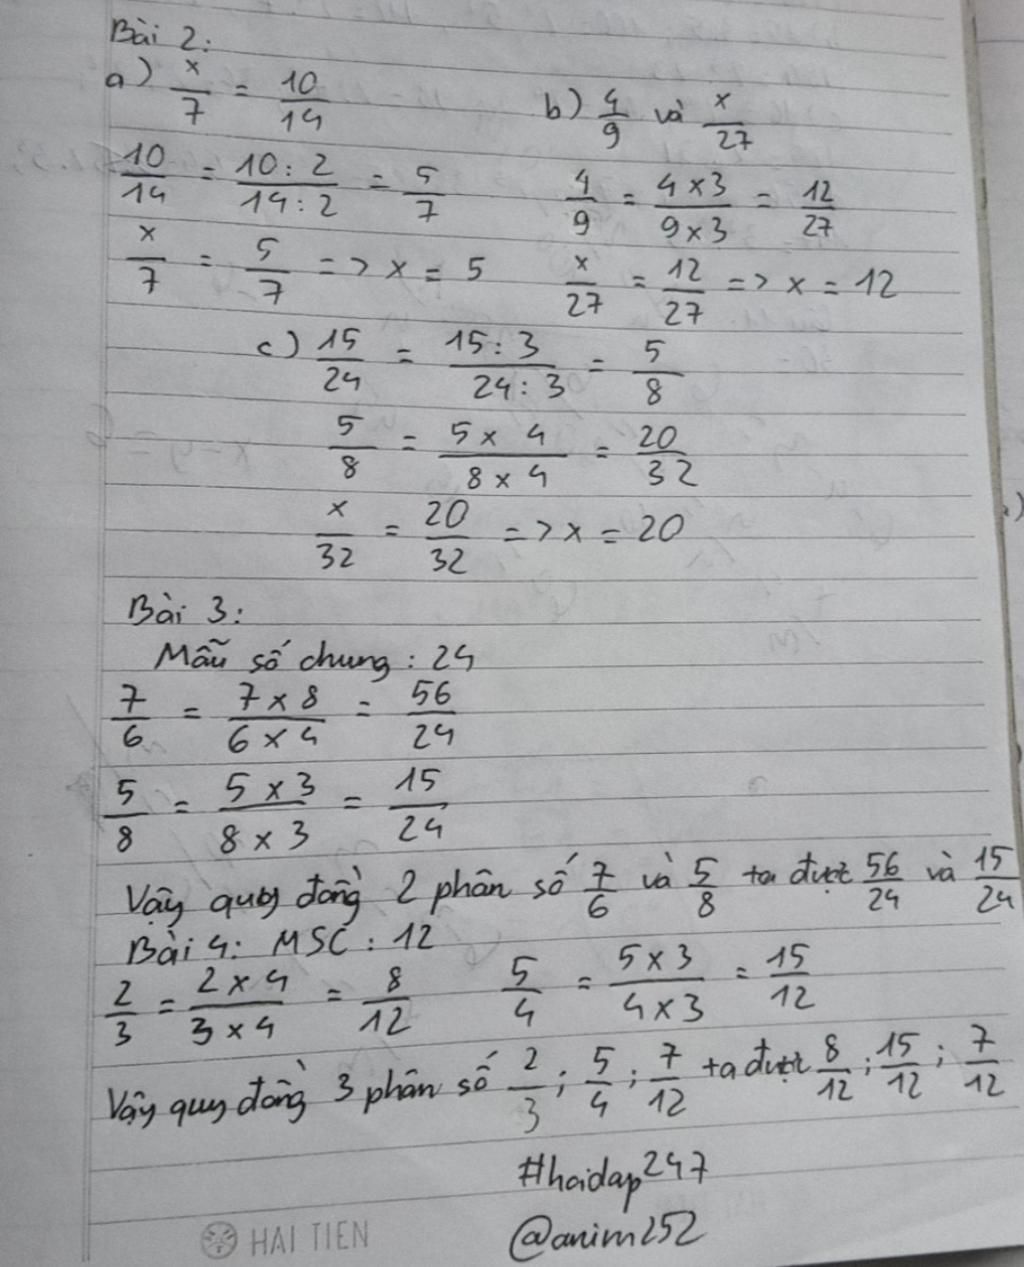 Bài 2:
a) x/7 = 10/14
b) 4/9 và x/27
10/14 = 10:2/14:2 = 5/7
4/9 = 4x3/9x3 = 12/27
x/7 = 5/7 => x = 5
x/27 = 12/27 => x = 12
c) 15/24 = 15:3/24:3 = 5/8
5/8 = 5x4/8x4 = 20/32
x/32 = 20/32 => x = 20
Bài 3:
Mẫu số chung: 24
7/6 = 7x8/6x4 = 56/24
5/8 = 5x3/8x3 = 15/24
Vậy quy đồng 2 phân số 7/6 và 5/8 ta được 56/24 và 15/24
Bài 4: MSC: 12
2/3 = 2x4/3x4 = 8/12 5/4 = 5x3/4x3 = 15/12
Vậy quy đồng 3 phân số 2/3; 5/4; 7/12 ta được 8/12; 15/12; 7/12
#hoidap247
@anim252
HẢI TIẾN